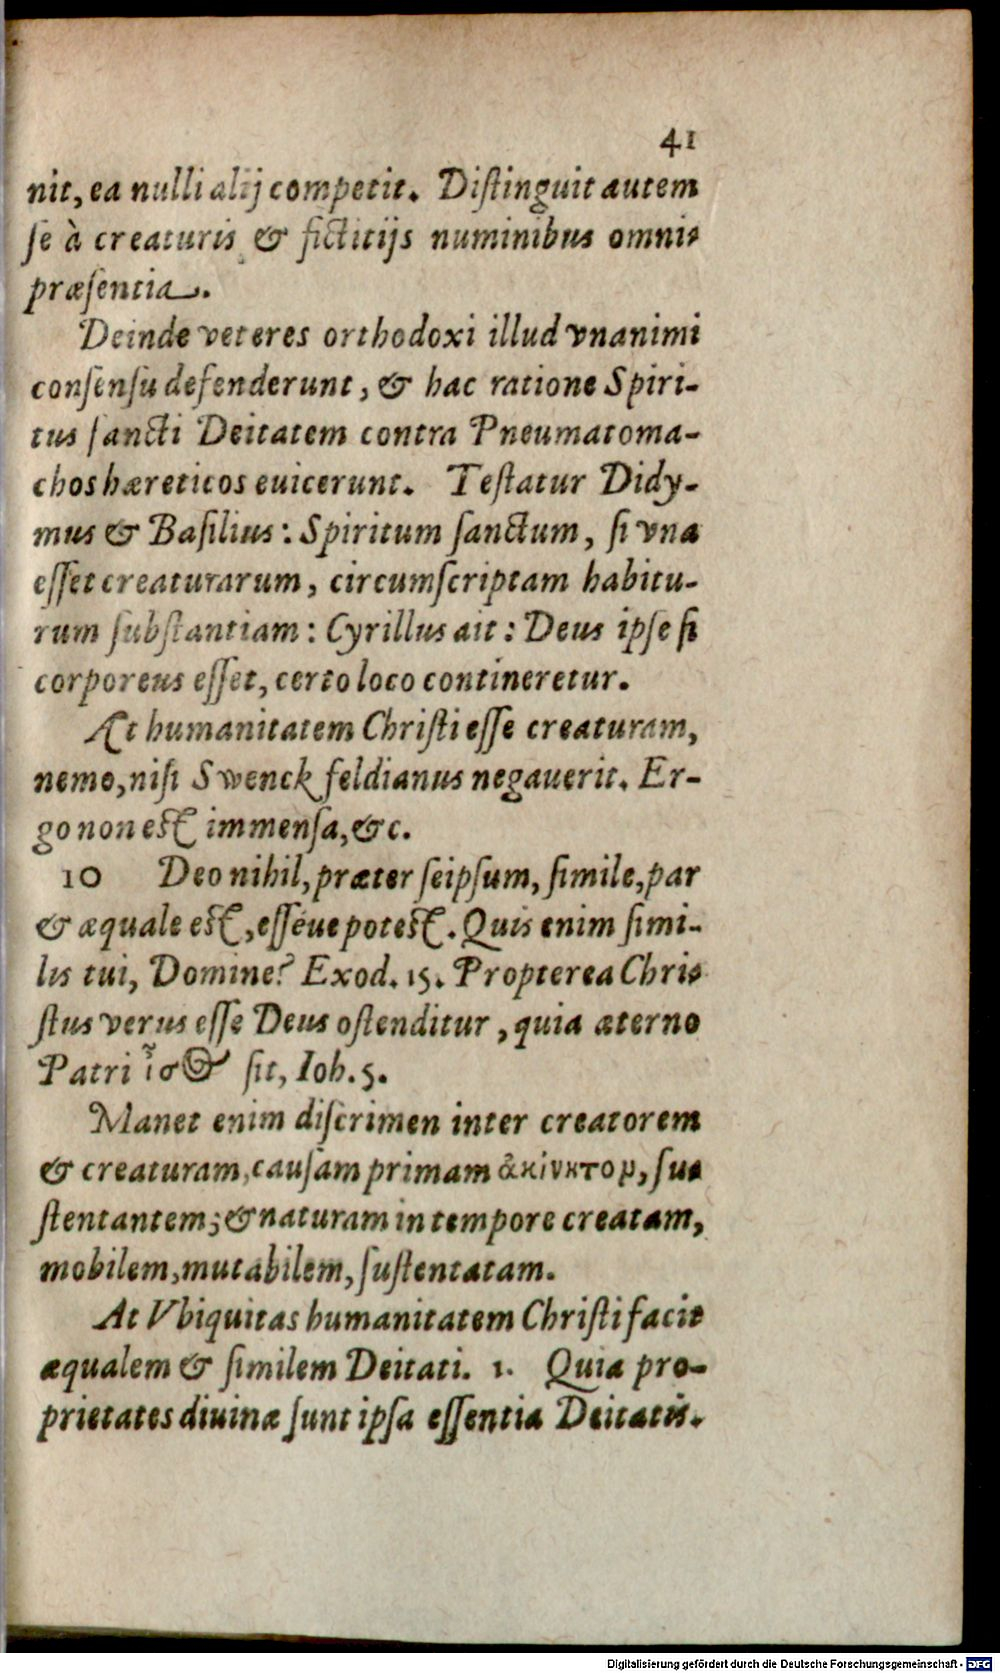 41
nit, ea nulli alij competit. Distinguit autem
se à creaturis & fictitijs numinibus omni-
præsentia.
Deinde veteres orthodoxi illud vnanimi
consensu defenderunt, & hac ratione Spiri-
tus sancti Deitatem contra Pneumatoma-
chos hæreticos euicerunt. Testatur Didy-
mus & Basilius: Spiritum sanctum, si vna
esset creaturarum, circumscriptam habitu-
rum substantiam: Cyrillus ait: Deus ipse si
corporeus esset, certo loco contineretur.
Æt humanitatem Christi esse creaturam,
nemo, nisi Swenckfeldianus negauerit. Er-
go non est immensa, &c.
10 Deo nihil, præter seipsum, simile, par
& æquale est, esséue potest. Quis enim simi-
lis tui, Domine? Exod. 15. Propterea Chri-
stus verus esse Deus ostenditur, quia æterno
Patri ἴσος sit, Ioh. 5.
Manet enim discrimen inter creatorem
& creaturam, causam primam ἀκίνητομ, su-
stentantem; & naturam in tempore creatam,
mobilem, mutabilem, sustentatam.
At Vbiquitas humanitatem Christi facit
æqualem & similem Deitati. 1. Quia pro-
prietates diuinæ sunt ipsa essentia Deitatis.
Digitalisierung gefördert durch die Deutsche Forschungsgemeinschaft - DFG